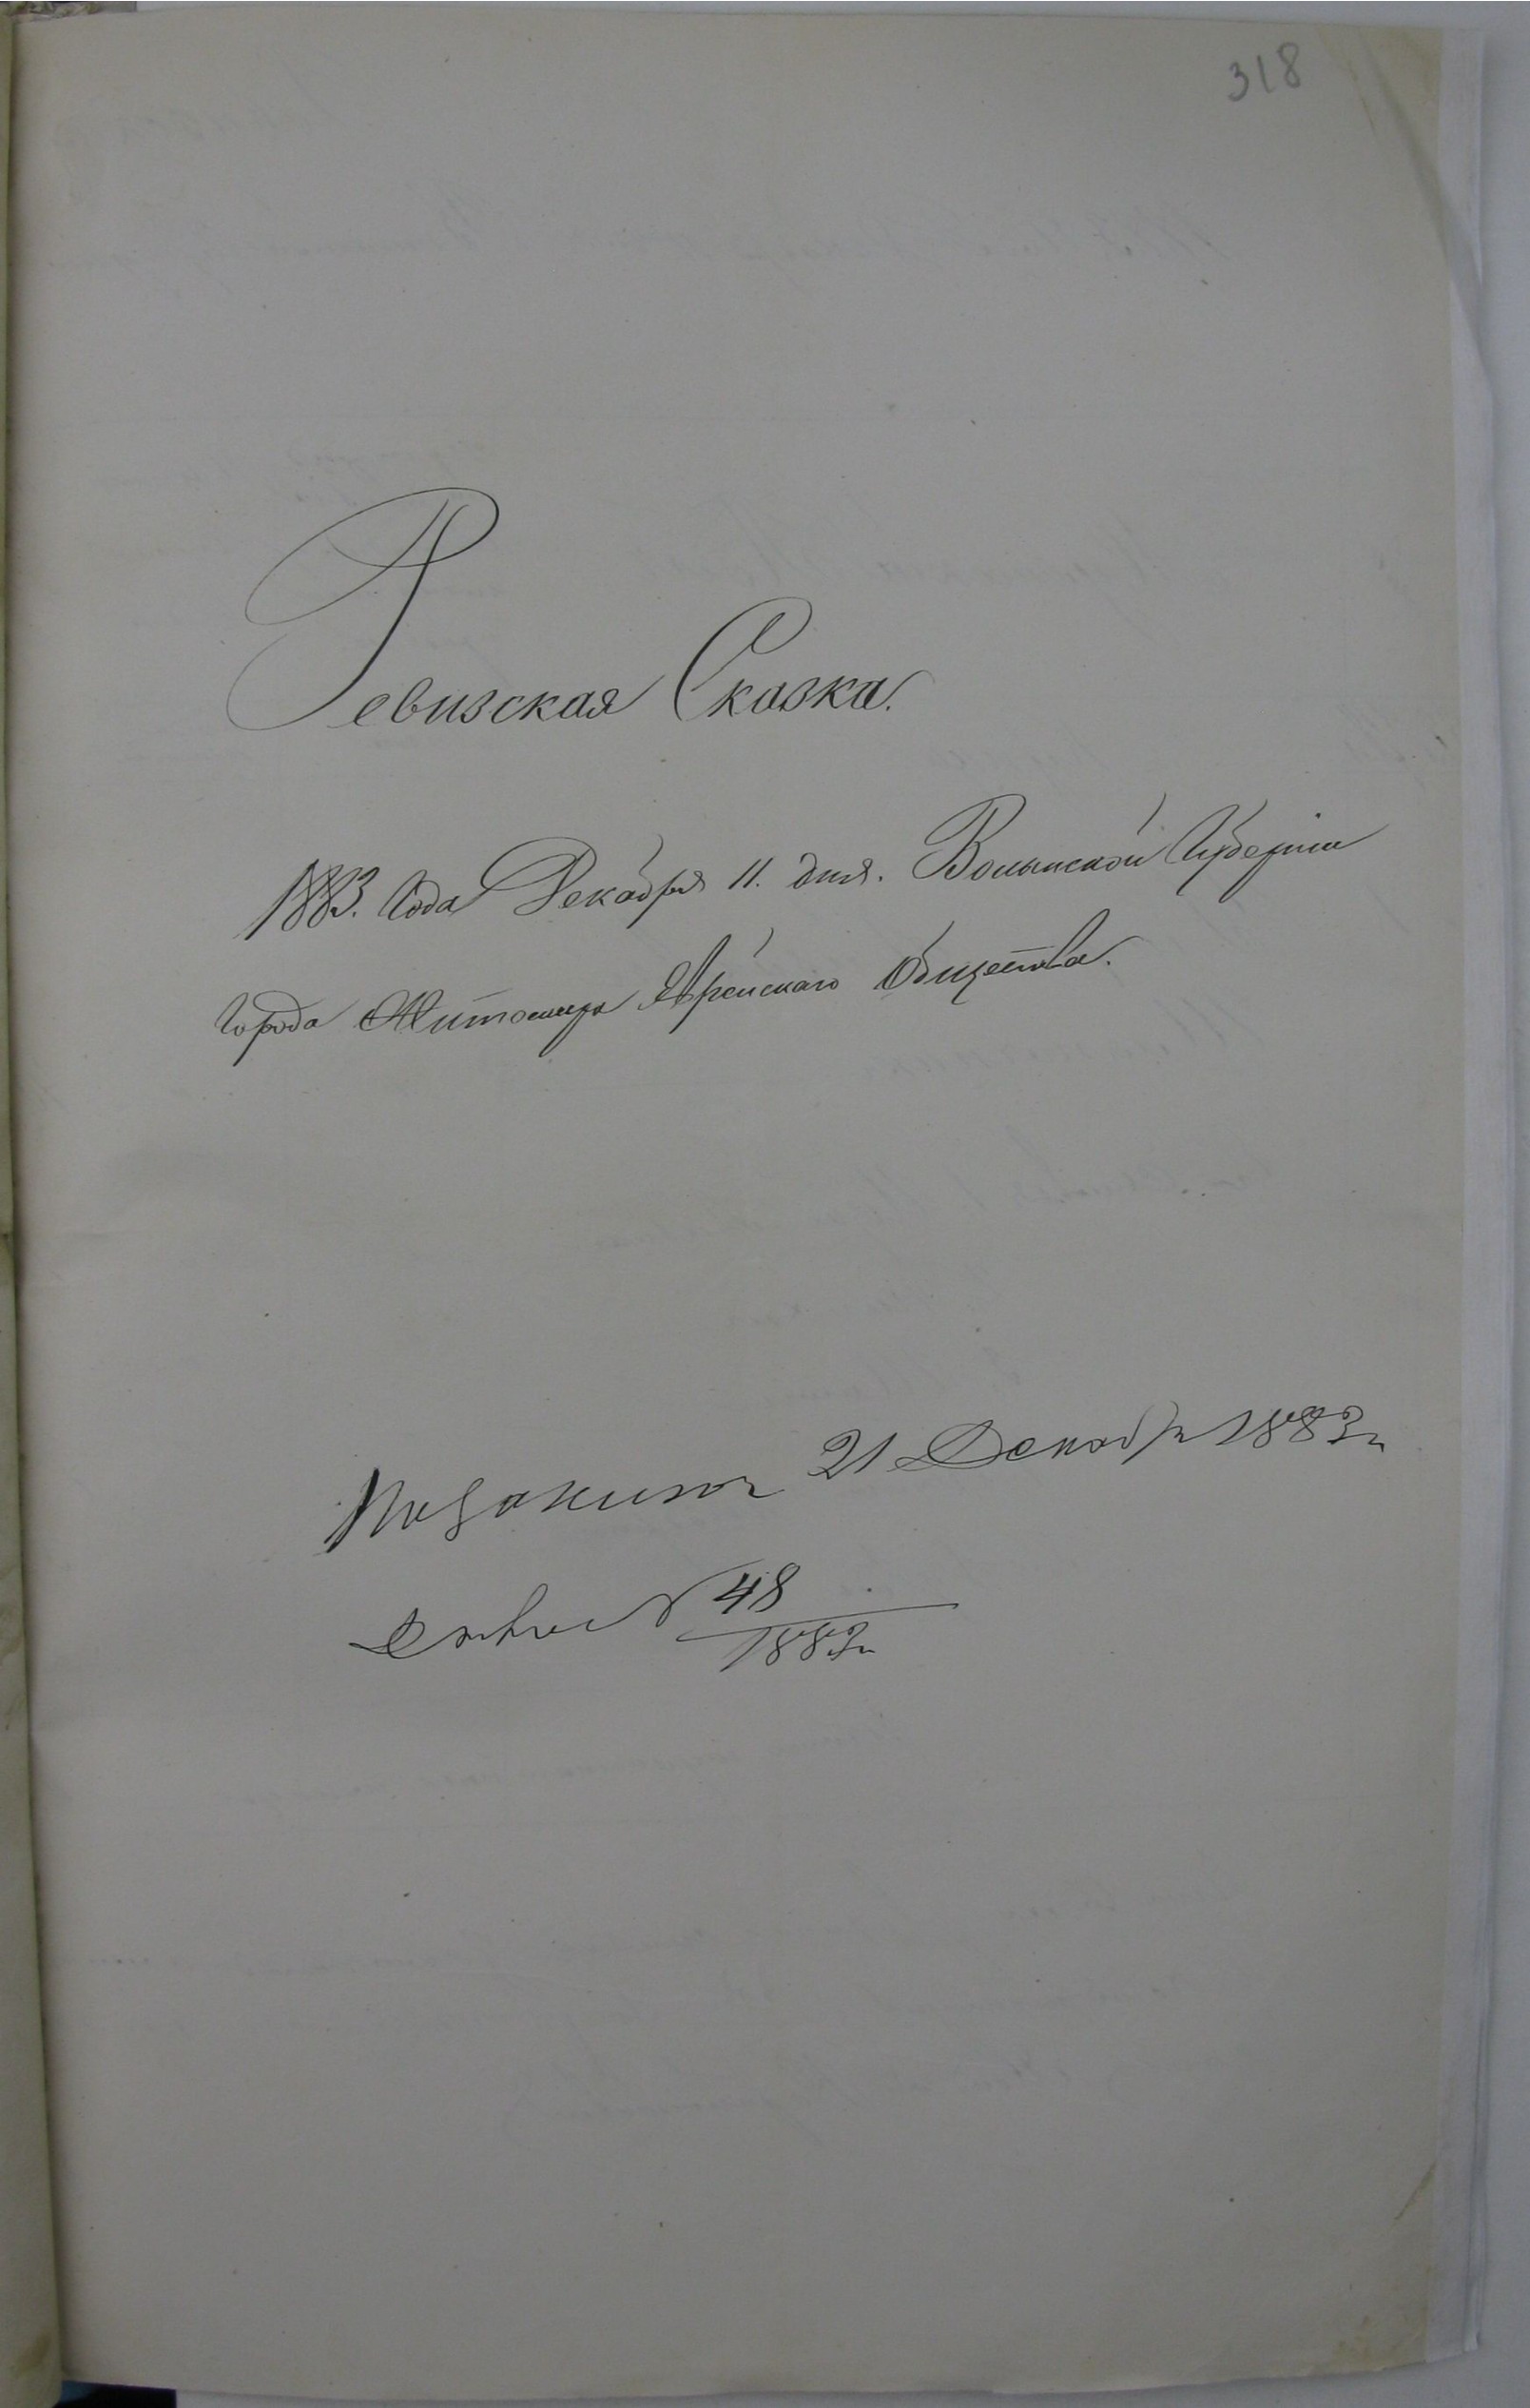 318
Ревизская Сказка.
1883. Года Декабря 11. дня. Волынской Губерніи
Города Житомира Еврейскаго Общества.
21 Декабря 1883 г.
Дело № 48
1883 г.